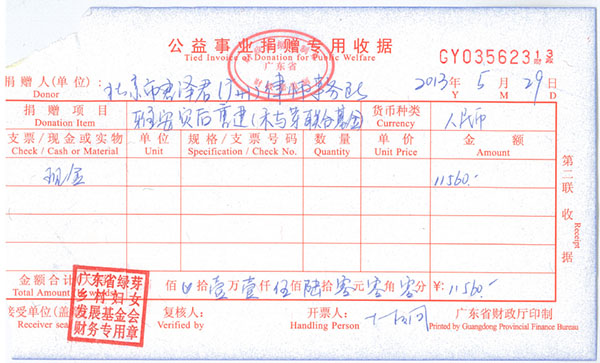 公益事业捐赠专用收据
Tied Invoice of Donation for Public Welfare
广东省
GY03562313
捐赠人(单位): 北京市君泽君(广州)律师事务所 2013年5月29日
Donor Y M D
捐赠项目 雅安灾后重建 联合基金 货币种类 人民币
Donation Item Currency
支票/现金或实物 单位 规格/支票号码 数量 单价 金额
Check / Cash or Material Unit Specification / Check No. Quantity Unit Price Amount
现金 11560.-
第二联 收据 Receipt
金额合计 佰 拾壹万壹仟伍佰陆拾零元零角零分 ¥: 11560.-
Total Amount
广东省绿芽
乡村妇女
发展基金会
财务专用章
接受单位(盖 复核人: 开票人: 广东省财政厅印制
Receiver sea Verified by Handling Person Printed by Guangdong Provincial Finance Bureau